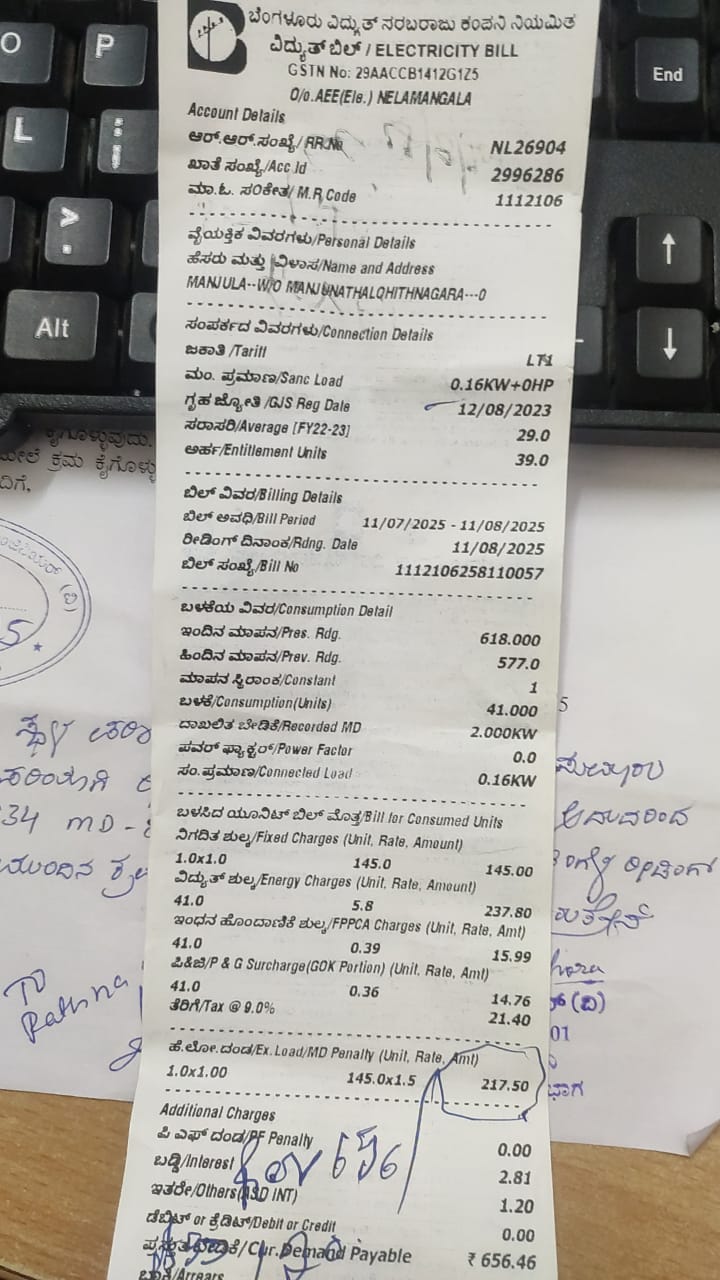 ಬೆಂಗಳೂರು ವಿದ್ಯುತ್ ಸರಬರಾಜು ಕಂಪನಿ ನಿಯಮಿತ
ವಿದ್ಯುತ್ ಬಿಲ್ / ELECTRICITY BILL
GSTN No: 29AACCB1412G1Z5
O/o.AEE(Ele.) NELAMANGALA
Account Details
ಆರ್.ಆರ್.ಸಂಖ್ಯೆ/ RR.No NL26904
ಖಾತೆ ಸಂಖ್ಯೆ/Acc Id 2996286
ಮಾ.ಓ. ಸಂಕೇತ/ M.R Code 1112106
ವೈಯಕ್ತಿಕ ವಿವರಗಳು/Personal Details
ಹೆಸರು ಮತ್ತು ವಿಳಾಸ/Name and Address
MANJULA--W/O MANJUNATHALOHITHNAGARA---0
ಸಂಪರ್ಕದ ವಿವರಗಳು/Connection Details
ಜಕಾತಿ /Tariff LT1
ಮಂ. ಪ್ರಮಾಣ/Sanc Load 0.16KW+0HP
ಗೃಹ ಜ್ಯೋತಿ /GJS Reg Date 12/08/2023
ಸರಾಸರಿ/Average [FY22-23] 29.0
ಅರ್ಹ/Entitlement Units 39.0
ಬಿಲ್ ವಿವರ/Billing Details
ಬಿಲ್ ಅವಧಿ/Bill Period 11/07/2025 - 11/08/2025
ರೀಡಿಂಗ್ ದಿನಾಂಕ/Rdng. Date 11/08/2025
ಬಿಲ್ ಸಂಖ್ಯೆ/Bill No 1112106258110057
ಬಳಕೆಯ ವಿವರ/Consumption Detail
ಇಂದಿನ ಮಾಪನ/Pres. Rdg. 618.000
ಹಿಂದಿನ ಮಾಪನ/Prev. Rdg. 577.0
ಮಾಪನ ಸ್ಥಿರಾಂಕ/Constant 1
ಬಳಕೆ/Consumption(Units) 41.000
ದಾಖಲಿತ ಬೇಡಿಕೆ/Recorded MD 2.000KW
ಪವರ್ ಫ್ಯಾಕ್ಟರ್/Power Factor 0.0
ಸಂ.ಪ್ರಮಾಣ/Connected Load 0.16KW
ಬಳಸಿದ ಯೂನಿಟ್ ಬಿಲ್ ಮೊತ್ತ/Bill for Consumed Units
ನಿಗದಿತ ಶುಲ್ಕ/Fixed Charges (Unit, Rate, Amount)
1.0x1.0 145.0 145.00
ವಿದ್ಯುತ್ ಶುಲ್ಕ/Energy Charges (Unit, Rate, Amount)
41.0 5.8 237.80
ಇಂಧನ ಹೊಂದಾಣಿಕೆ ಶುಲ್ಕ/FPPCA Charges (Unit, Rate, Amt)
41.0 0.39 15.99
ಪಿ&ಜಿ/P & G Surcharge(GOK Portion) (Unit, Rate, Amt)
41.0 0.36 14.76
ತೆರಿಗೆ/Tax @ 9.0% 21.40
ಹೆ.ಲೋ.ದಂಡ/Ex.Load/MD Penalty (Unit, Rate, Amt)
1.0x1.00 145.0x1.5 217.50
Additional Charges
ಪಿ ಎಫ್ ದಂಡ/PF Penalty 0.00
ಬಡ್ಡಿ/Interest 2.81
ಇತರೇ/Others(ASD INT) 1.20
ಡೆಬಿಟ್ or ಕ್ರೆಡಿಟ್/Debit or Credit 0.00
ಪ್ರಸ್ತುತ ಬೇಡಿಕೆ/Cur.Demand Payable ₹ 656.46
ಬಾಕಿ/Arrears
656
O
P
L
End
Alt
ಕೈಗೊಳ್ಳುವುದು.
34 MD
TO
5
01